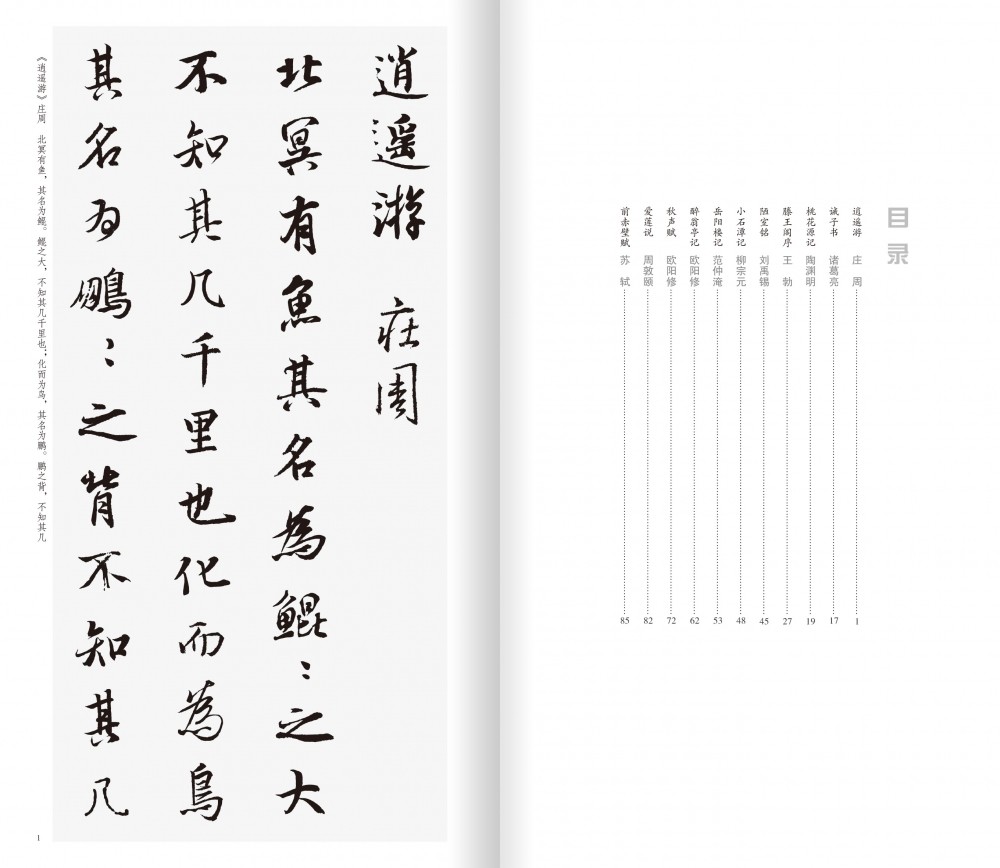 目录
逍遥游 庄周 1
诫子书 诸葛亮 17
桃花源记 陶渊明 19
滕王阁序 王勃 27
陋室铭 刘禹锡 45
小石潭记 柳宗元 48
岳阳楼记 范仲淹 53
醉翁亭记 欧阳修 62
秋声赋 欧阳修 72
爱莲说 周敦颐 82
前赤壁赋 苏轼 85
逍遥游 庄周
北冥有魚其名為鯤:之大
不知其几千里也化而為鳥
其名为鵬:之背不知其几
《逍遥游》庄周 北冥有鱼，其名为鲲。鲲之大，不知其几千里也；化而为鸟，其名为鹏。鹏之背，不知其几
1